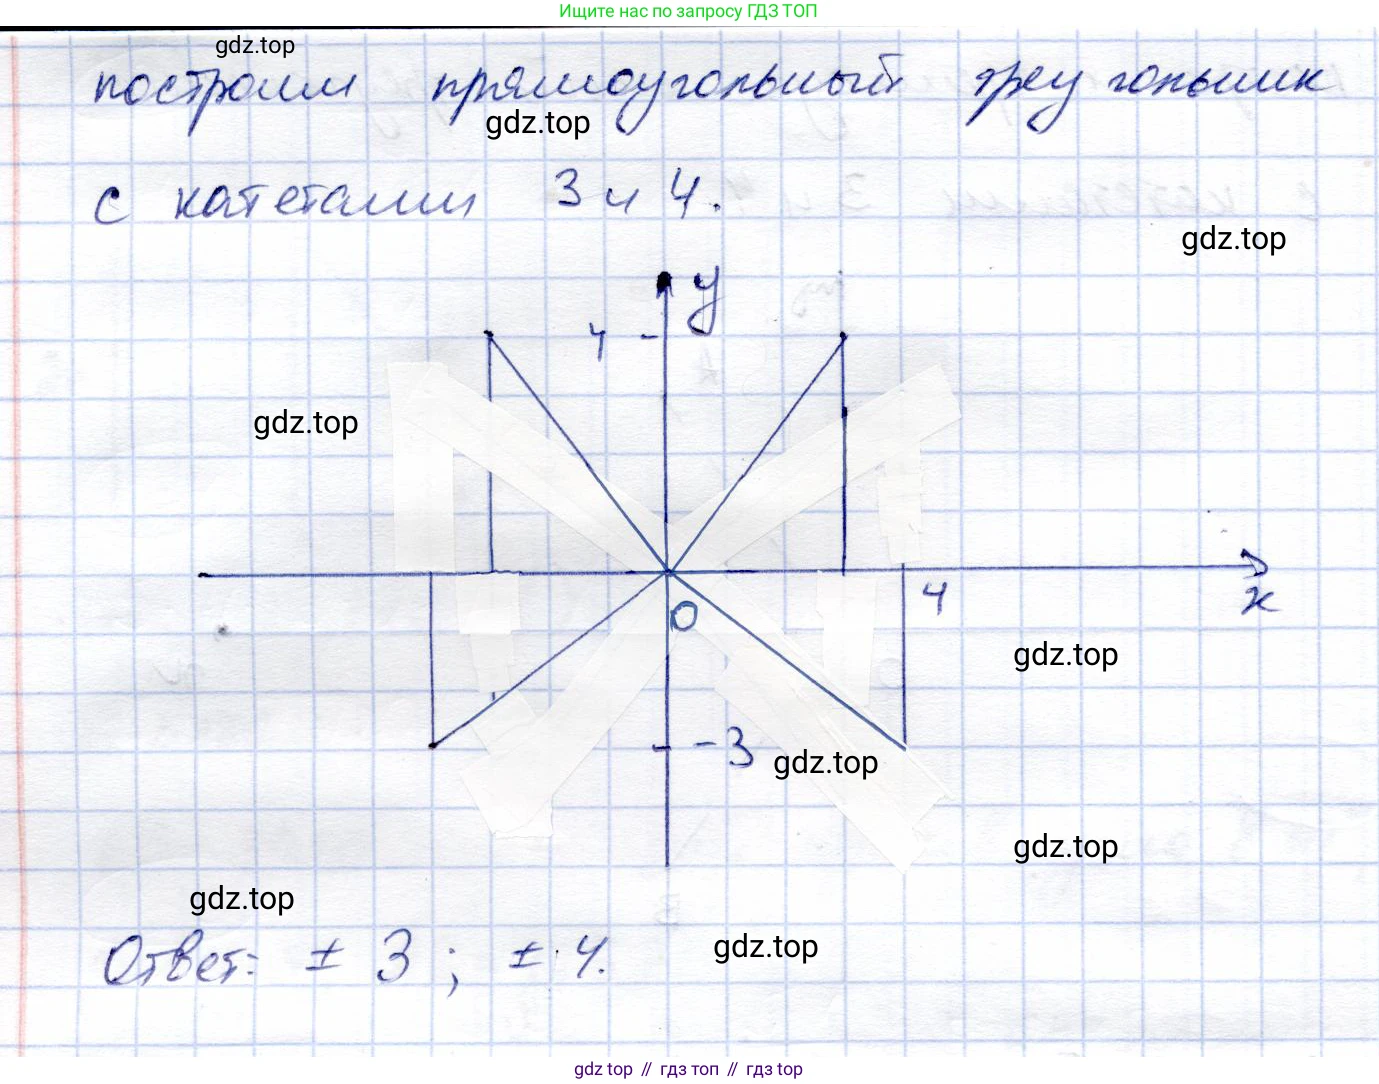 Ищите нас по запросу ГДЗ ТОП
gdz.top
построим прямоугольный треугольник
gdz.top
с катетами 3 и 4.
gdz.top
y
4
gdz.top
4
x
0
gdz.top
-3
gdz.top
gdz.top
gdz.top
Ответ: ± 3 ; ± 4.
gdz.top
gdz top // гдз топ // гдз top